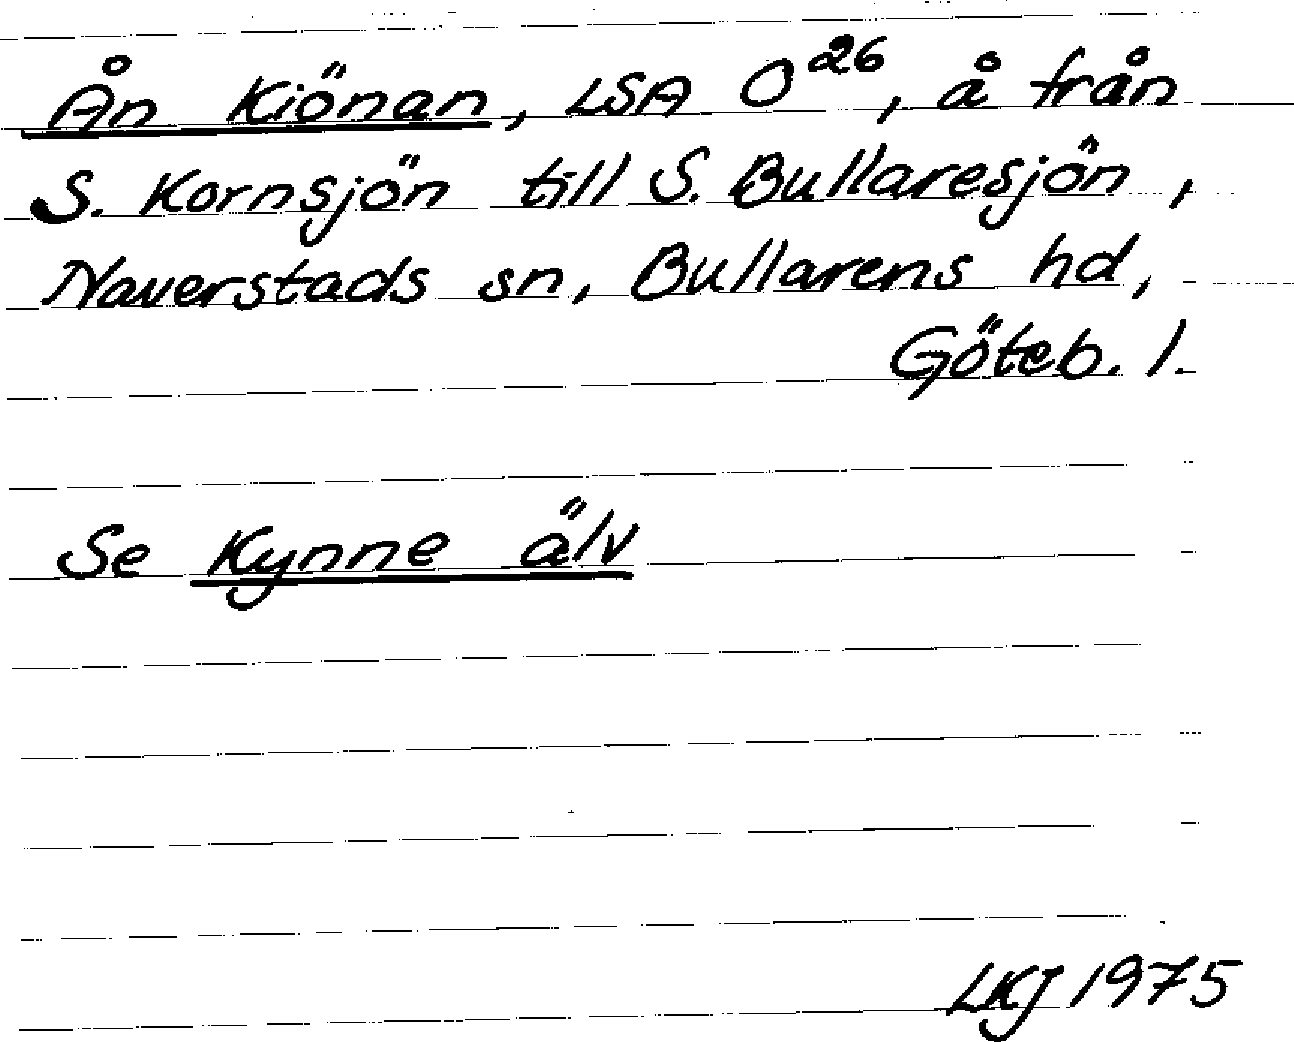 Ån Kiönan, LSA O²⁶, å från
S. Kornsjön till S. Bullaresjön,
Naverstads sn, Bullarens hd,
Göteb. l.
Se Kynne älv
LKJ 1975